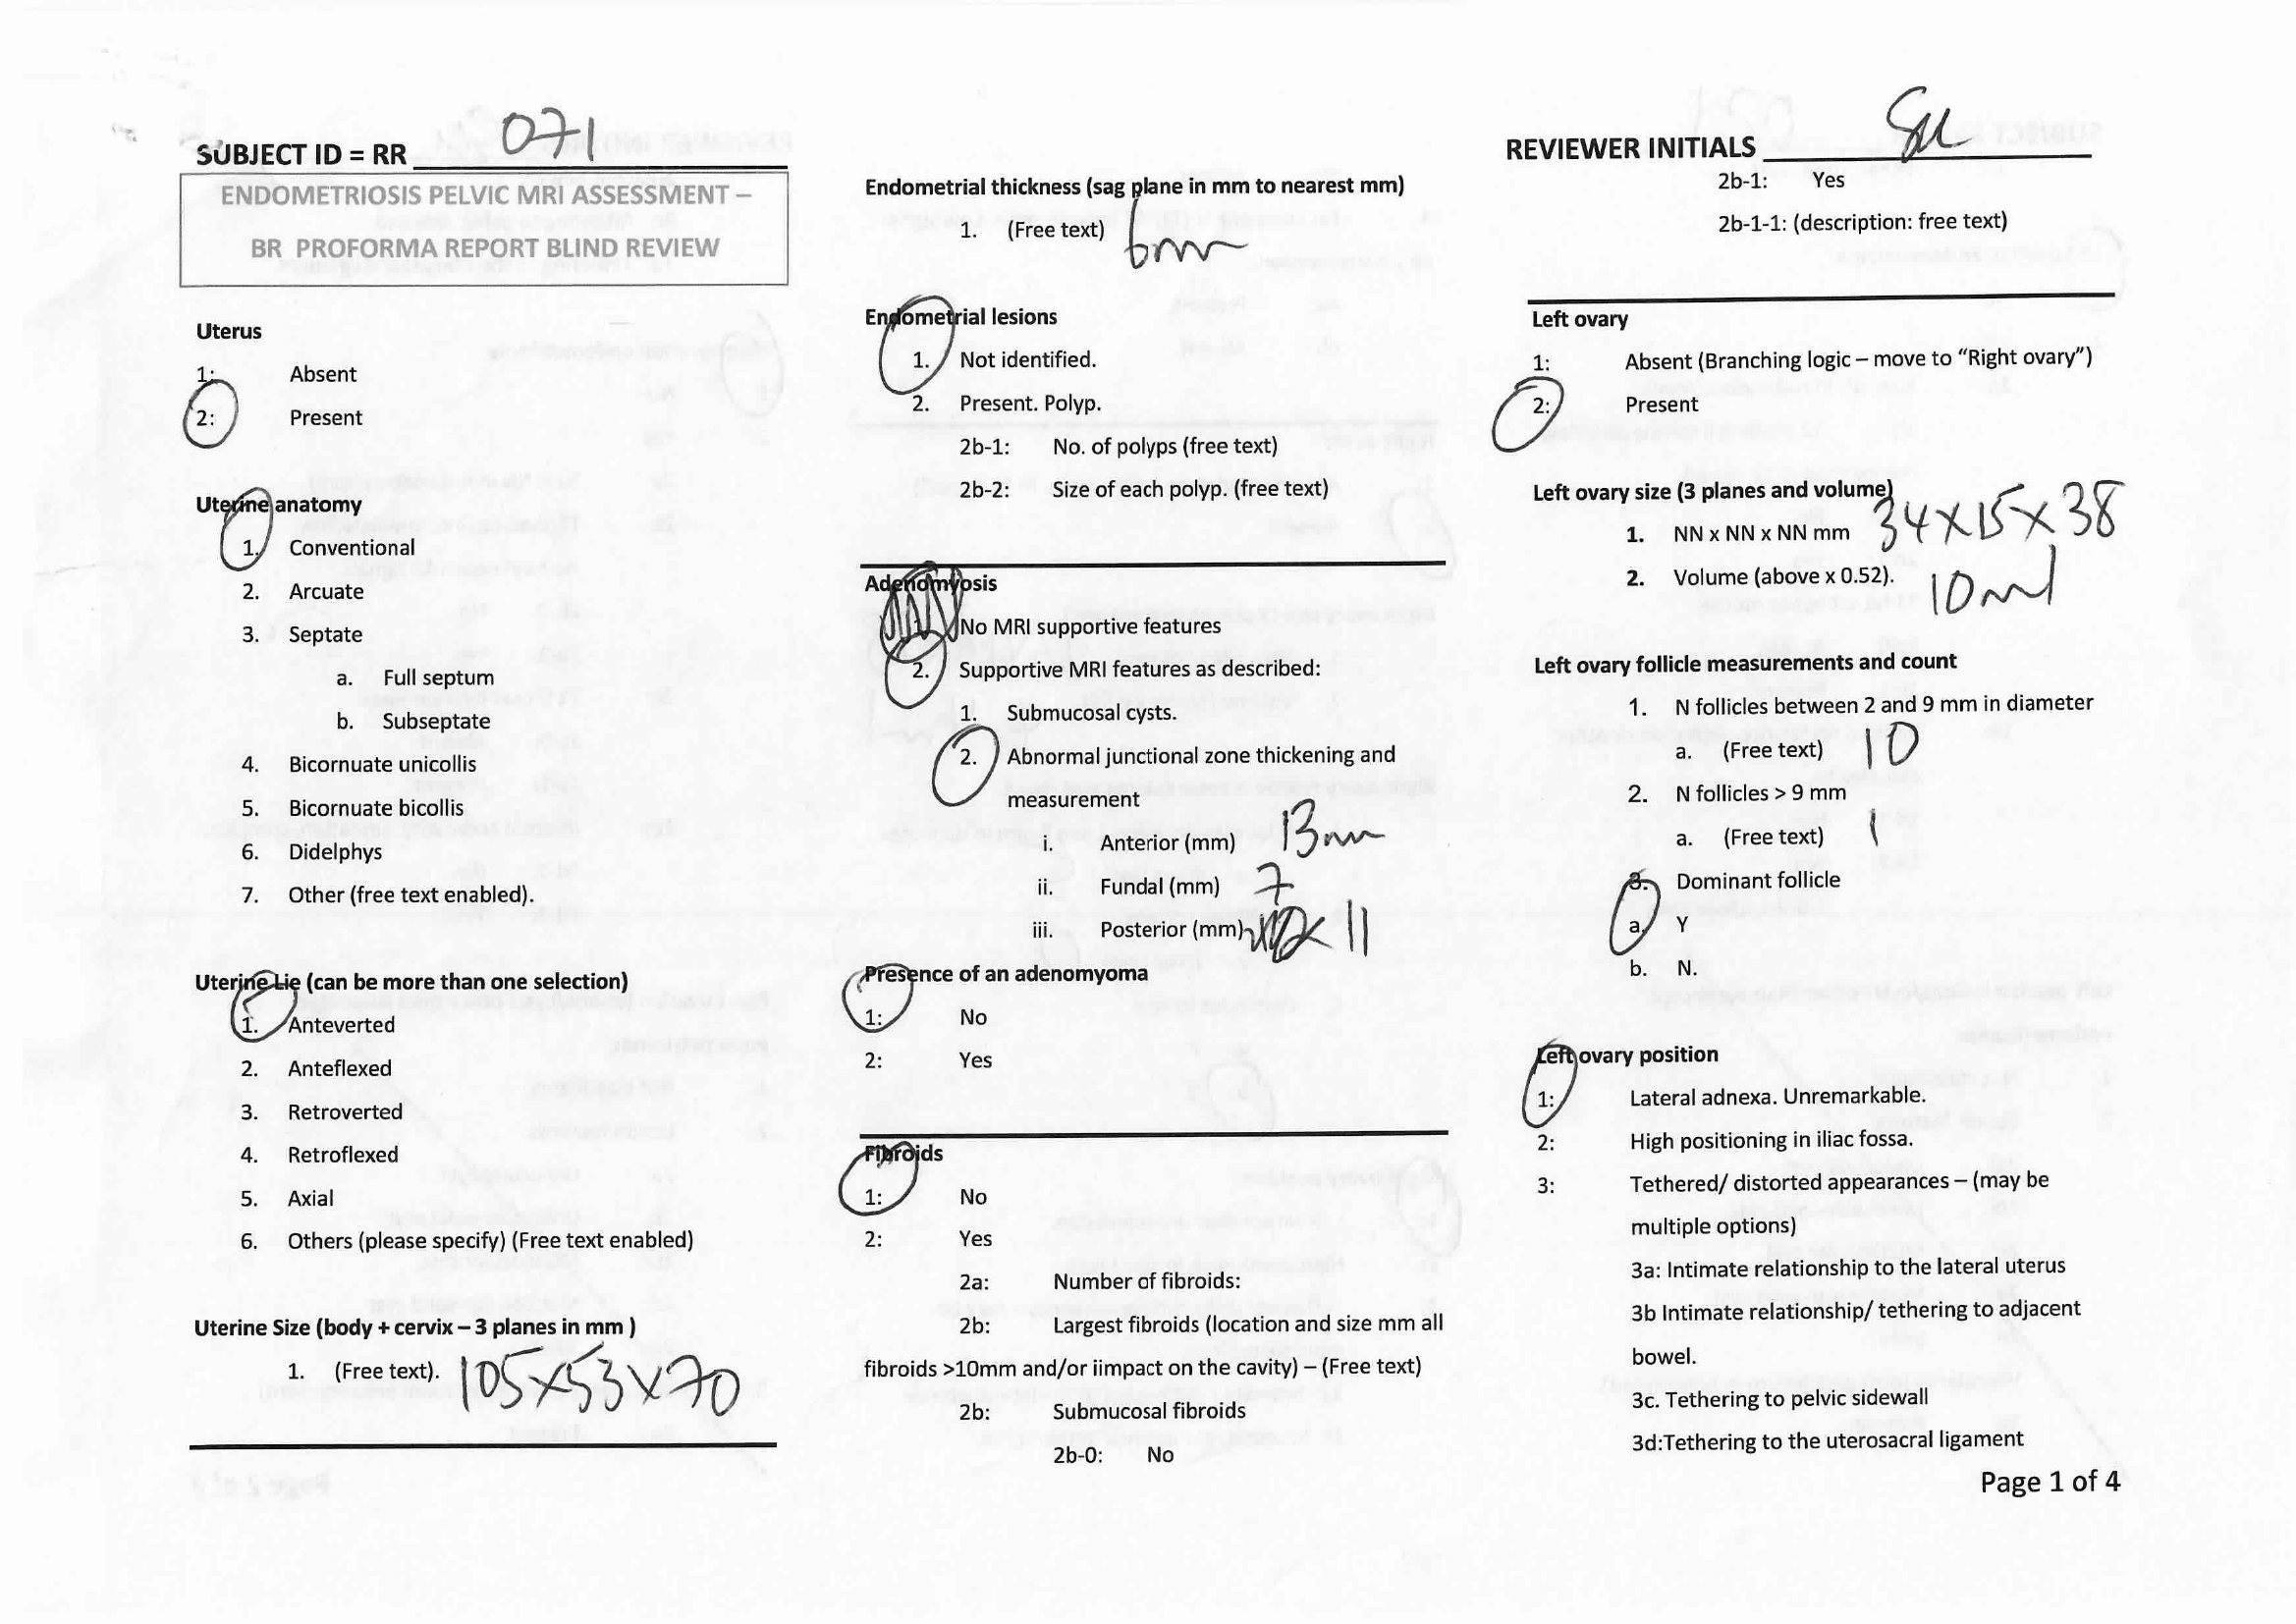 SUBJECT ID = RR 071
ENDOMETRIOSIS PELVIC MRI ASSESSMENT –
BR PROFORMA REPORT BLIND REVIEW
Uterus
1: Absent
2: Present
Uterine anatomy
1. Conventional
2. Arcuate
3. Septate
a. Full septum
b. Subseptate
4. Bicornuate unicollis
5. Bicornuate bicollis
6. Didelphys
7. Other (free text enabled).
Uterine Lie (can be more than one selection)
1. Anteverted
2. Anteflexed
3. Retroverted
4. Retroflexed
5. Axial
6. Others (please specify) (Free text enabled)
Uterine Size (body + cervix – 3 planes in mm )
1. (Free text). 105x53x70
Endometrial thickness (sag plane in mm to nearest mm)
1. (Free text) 6mm
Endometrial lesions
1. Not identified.
2. Present. Polyp.
2b-1: No. of polyps (free text)
2b-2: Size of each polyp. (free text)
Adenomyosis
No MRI supportive features
2. Supportive MRI features as described:
1. Submucosal cysts.
2. Abnormal junctional zone thickening and
measurement
i. Anterior (mm) 13mm
ii. Fundal (mm) 7
iii. Posterior (mm) 11
Presence of an adenomyoma
1: No
2: Yes
Fibroids
1: No
2: Yes
2a: Number of fibroids:
2b: Largest fibroids (location and size mm all
fibroids >10mm and/or iimpact on the cavity) – (Free text)
2b: Submucosal fibroids
2b-0: No
REVIEWER INITIALS
2b-1: Yes
2b-1-1: (description: free text)
Left ovary
1: Absent (Branching logic – move to “Right ovary”)
2: Present
Left ovary size (3 planes and volume)
1. NN x NN x NN mm 34x15x38
2. Volume (above x 0.52). 10ml
Left ovary follicle measurements and count
1. N follicles between 2 and 9 mm in diameter
a. (Free text) 10
2. N follicles > 9 mm
a. (Free text) 1
3. Dominant follicle
a. Y
b. N.
Left ovary position
1: Lateral adnexa. Unremarkable.
2: High positioning in iliac fossa.
3: Tethered/ distorted appearances – (may be
multiple options)
3a: Intimate relationship to the lateral uterus
3b Intimate relationship/ tethering to adjacent
bowel.
3c. Tethering to pelvic sidewall
3d:Tethering to the uterosacral ligament
Page 1 of 4